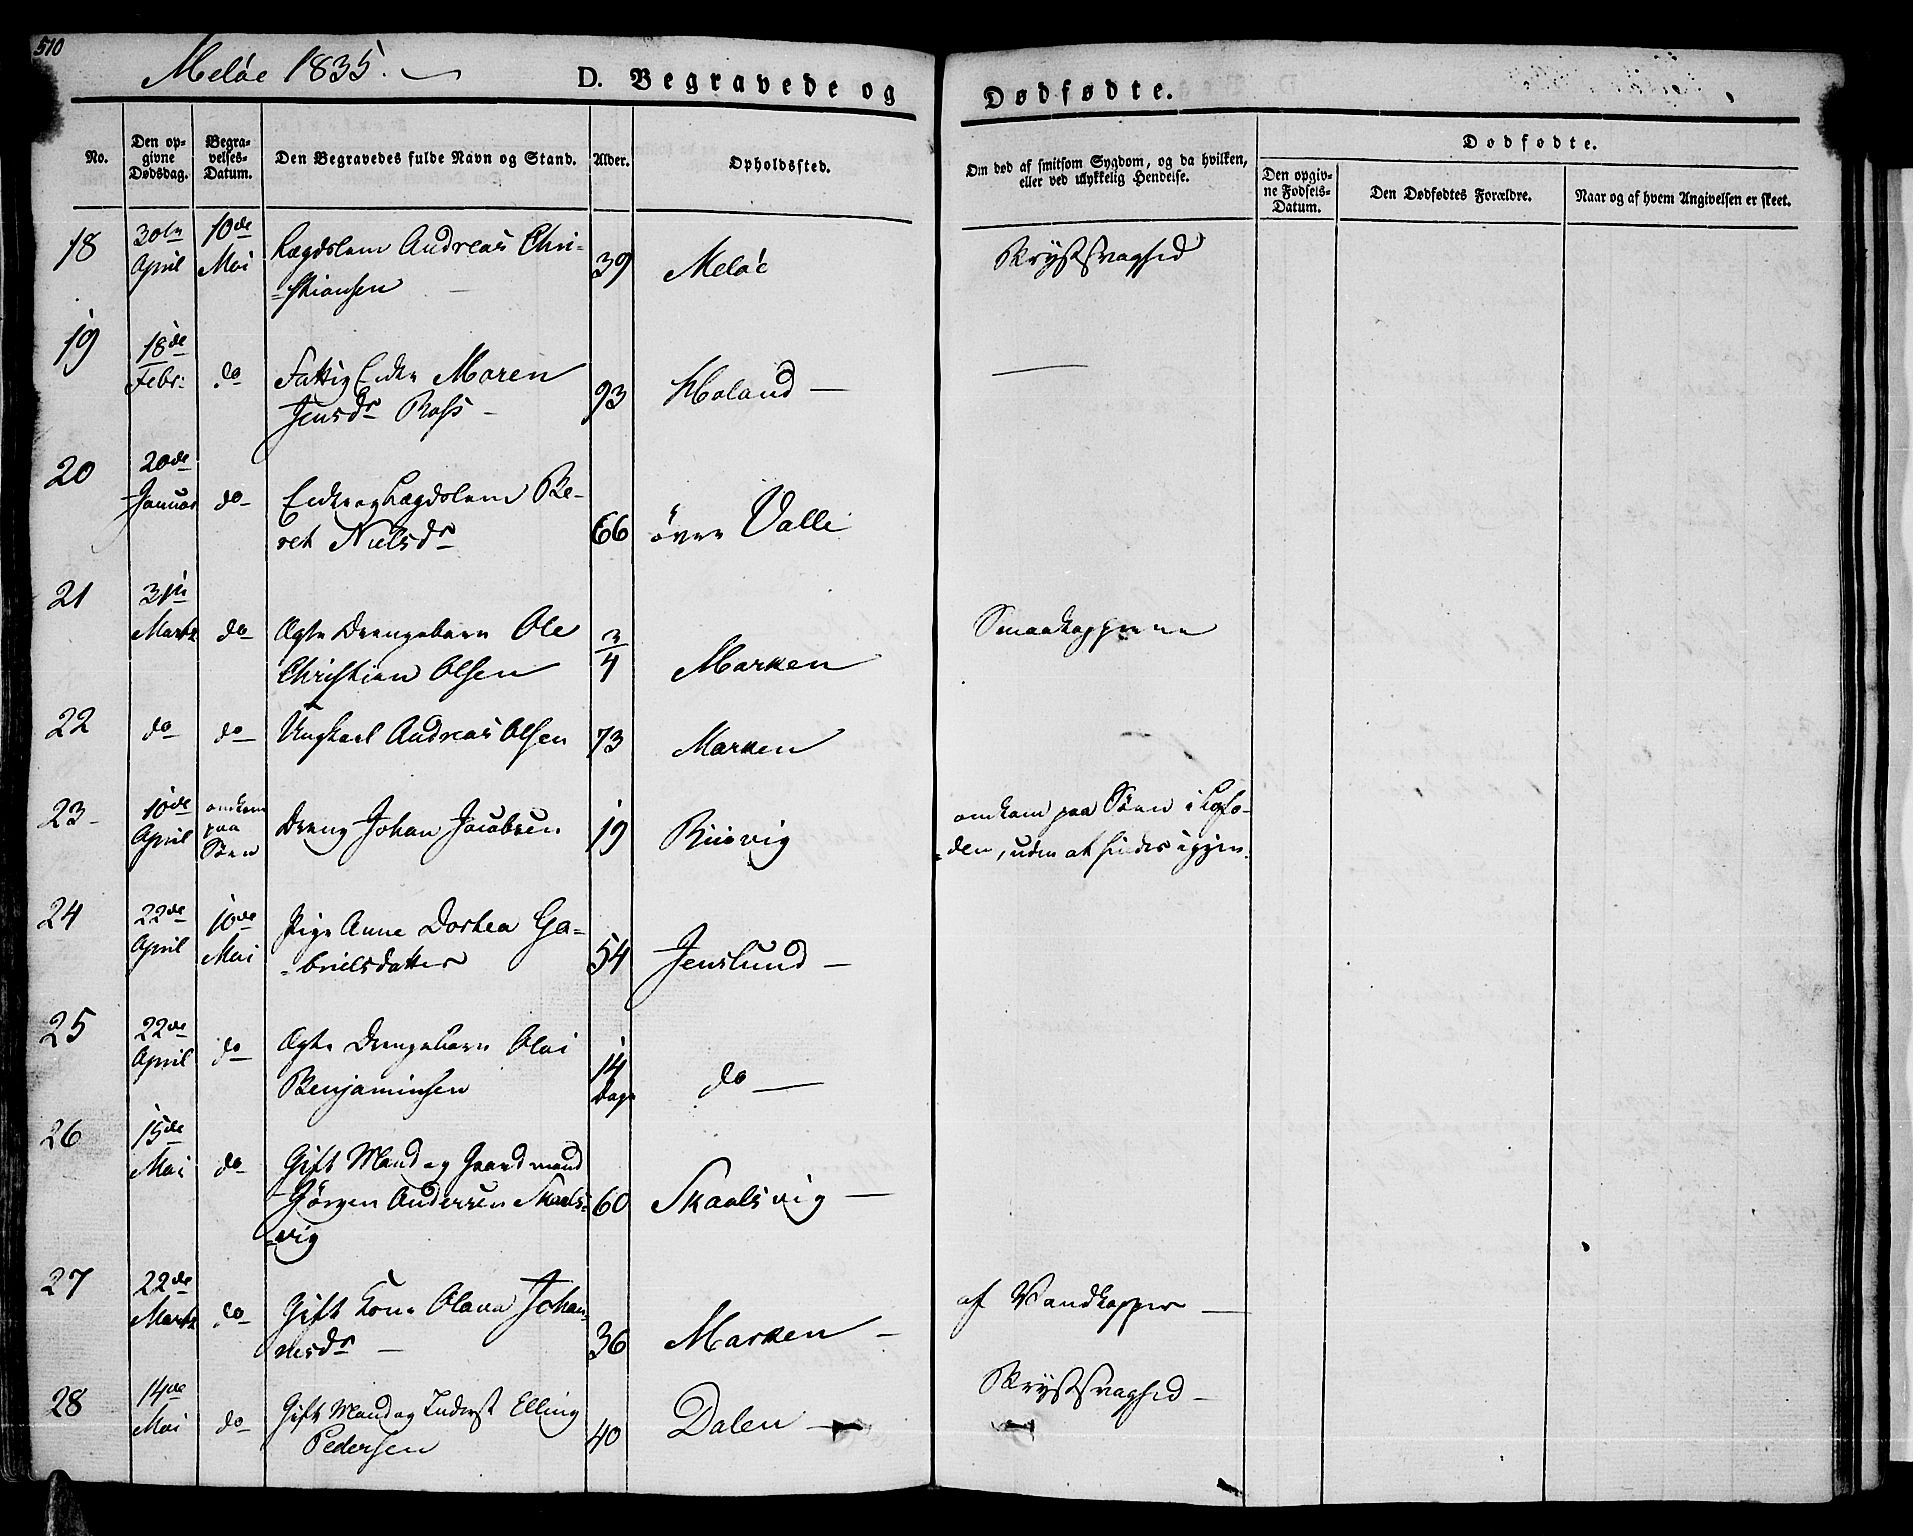 510
Meløe 1835.
D. Begravede og Dødfødte.
No.
Den opgivne Dødsdag.
Begravelses-Datum.
Den Begravedes fulde Navn og Stand.
Alder.
Opholdssted.
Om død af smitsom Sygdom, og da hvilken,
eller ved ulykkelig Hendelse.
Dødfødte.
Den opgivne Fødsels-Datum.
Den Dødfødtes Forældre.
Naar og af hvem Angivelsen er skeet.
18 30te April 10de Mai Lægdslem Andreas Chri-
-stiansen 39 Meløe Brystsvaghed
19 18de Febr: do Fattig Enke Maren
Jensdr Rass 93 Holand —
20 20de Januar do Enke og Lægdslem Be-
ret Nielsdr 66 øvre Valle
21 31te Martz do Ægte Drengebarn Ole
Christian Olsen 3/4 Marken Smaakopperne
22 do do Ungkarl Andreas Olsen 73 Marken
23 10de April omkom paa Søen Dreng Johan Jacobsen 19 omkom paa Søen i Lofo-
-den, uden at findes igjen.
24 22de April 10de Mai Pige Anne Dorthea Ga-
-brielsdatter 54 Jenslund —
25 22de April do Ægte Drengebarn Olai
Benjaminsen 14 Dage do —
26 15de Mai do Gift Mand og Gaardmand
Jørgen Andersen Skaals-
-vig 60 Skaalsvig —
27 22de Martz do Gift Kone Olava Johan-
nesdr — 36 Marken — af Vandkopper —
28 14de Mai do Gift Mand og Inderst Elling
Pedersen 40 Dalen — Brystsvaghed —